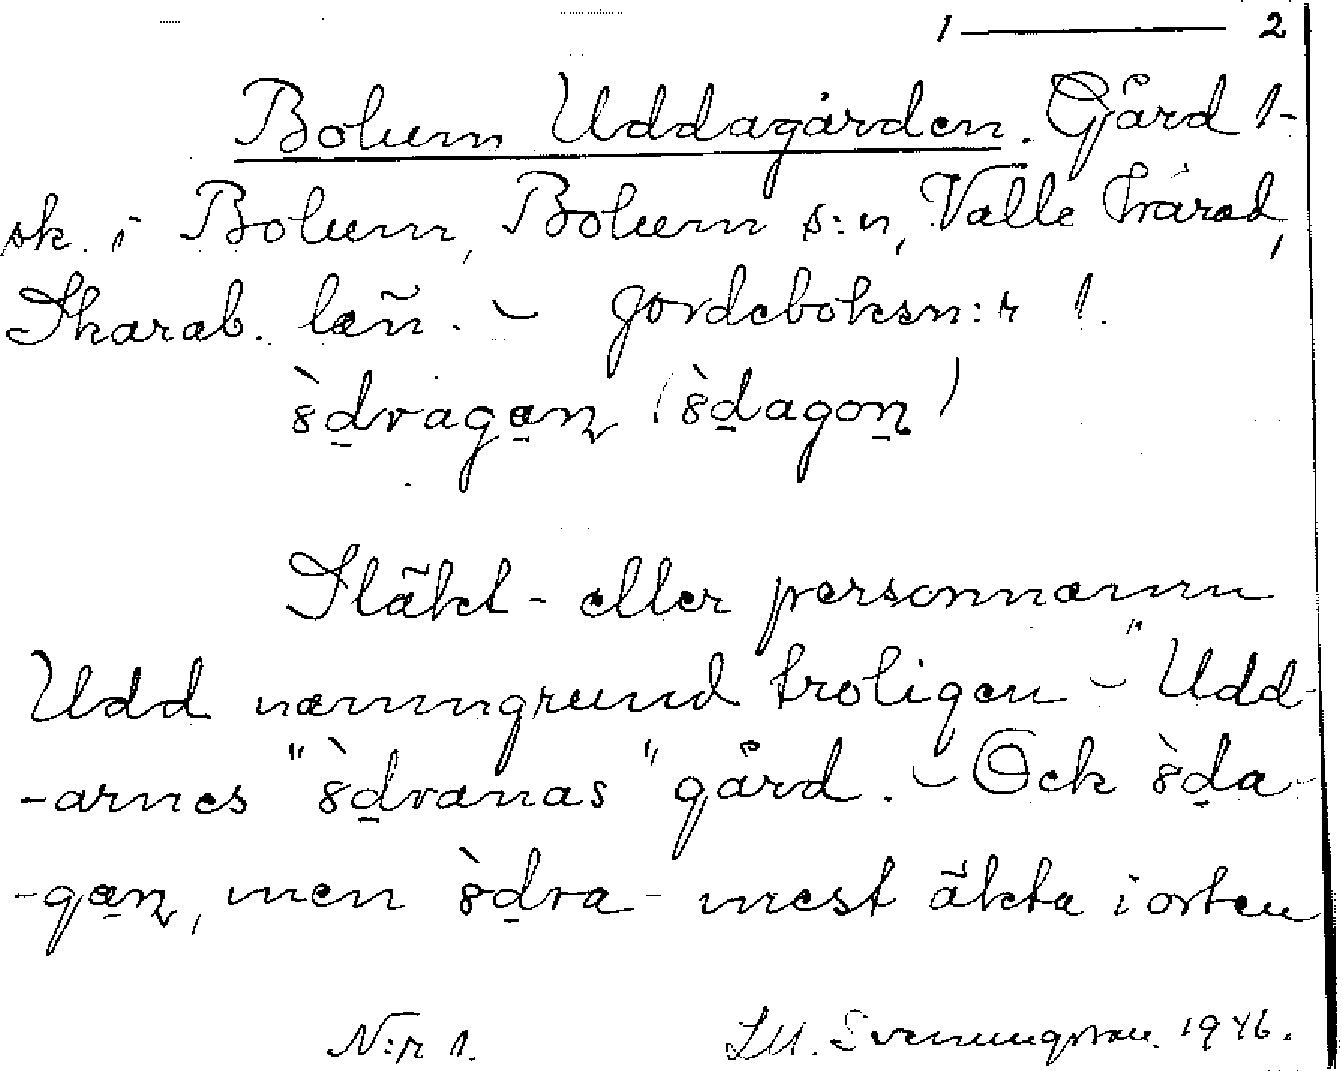 1 — 2
Bolum Uddagården. Gård 1-
sk. i Bolum, Bolum s:n, Valle härad,
Skarab. län. - Jordeboksn:r 1.
ꝸ̀d̠vraga̠n (ꝸ̀d̠agon̠)
Släkt- eller personnamn
Udd namngrund troligen - "Udd-
-arnes" "ꝸ̀d̠vranas" gård. - Ock ꝸ̀d̠a-
-ga̠n, men ꝸ̀d̠vra- mest äkta i orten
N:r 1. LM. Svenungsson. 1946.